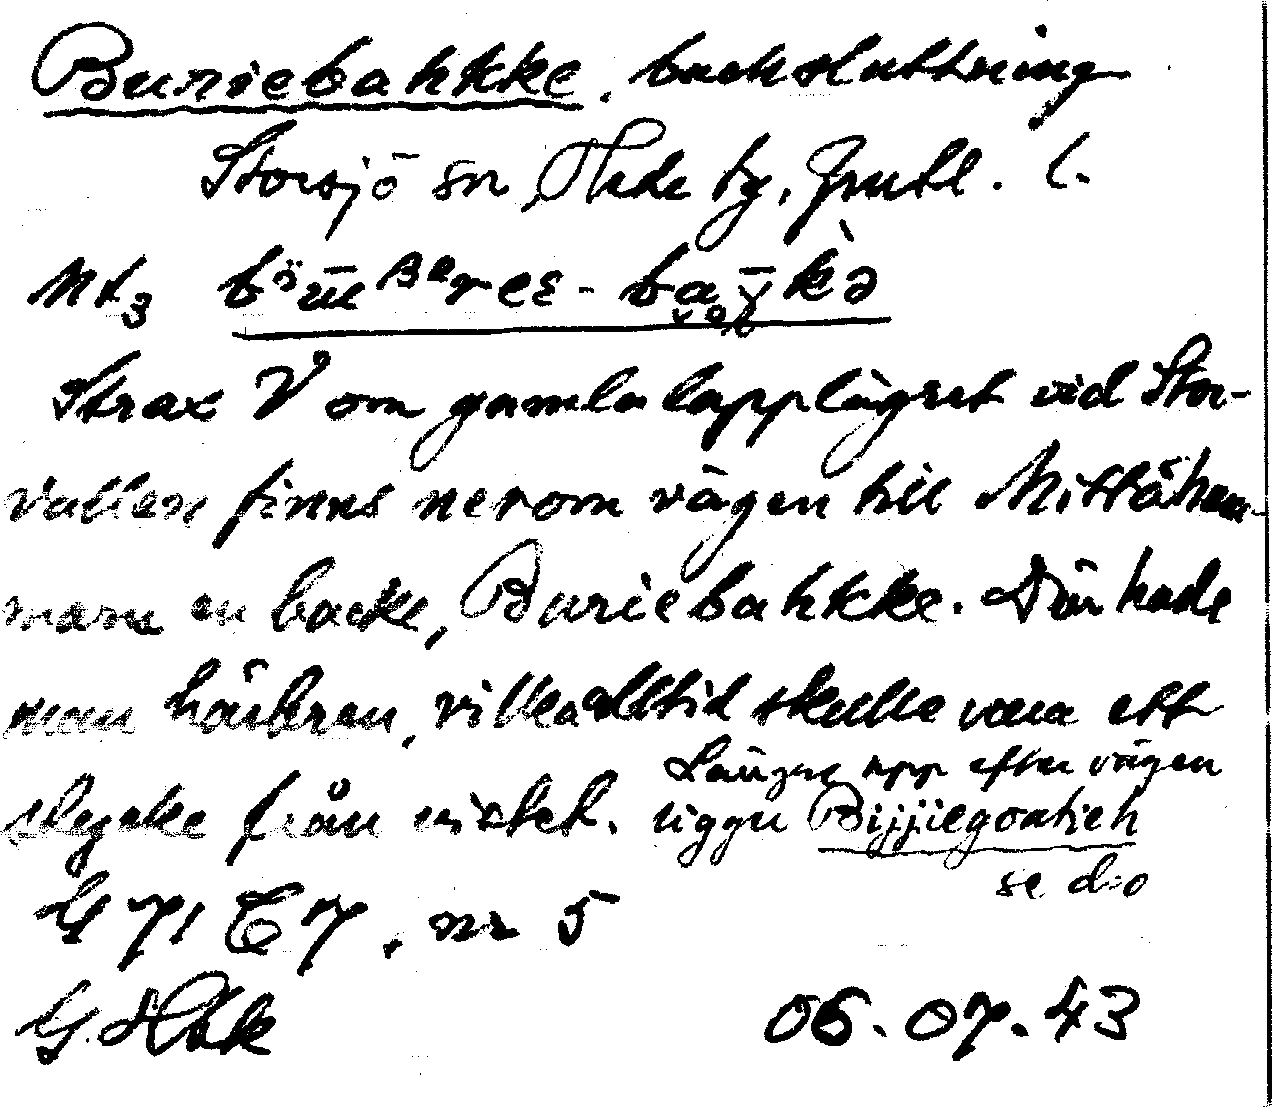 Buriebahkke. backsluttning
Storsjö sn Hede tg, Jmtl. l.
Strax V om gamla lapplägret vid Stor-
vallen finns nerom vägen till Mittåham-
marn en backe, Buriebahkke. Där hade
man härbren, vilka alltid skulle vara ett
stycke från vistet. Längre upp efter vägen
ligger Bijjiegoatieh
se d:o
G 71 C 7, nr 5
G. Hbk 06.07.43